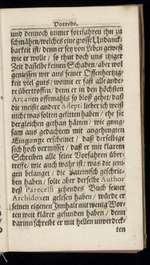 Vorrede.
und dennoch immer fortfahren ihn zu
schmähen/welches eine grosse Undanck-
barkeit ist/ denn er sey von Leben gewest
wie er wolle/ so thut doch uns itziger
Zeit dasselbe keinen Schaden/ aber wol
geniessen wir aus seiner Offenhertzig-
keit viel guts/ worinn er fast alle ande-
re übertroffen/ denn er in den höchsten
Arcanen offtmahls so bloß gehet/ daß
die meiste andere lieber ich weiß
nicht was solten gelitten haben/ ehe sie
dergleichen gethan hätten/ wie gnug-
sam aus gedachtem mit angehengten
erscheinet/ daß derselbige
sich hoch vermisset/ daß er mit klarem
Schreiben alle seine Vorfahren über-
treffe/ wie auch wahr ist/ was die
gen belanget/ die Lateinisch geschrie-
ben haben/ solte aber derselbe Author
deß Paracelsi zehendes Buch seiner
Archidoxen gelesen haben/ würde er
seinen eigenen Inhalt mit wenig Wor-
ten weit klärer gefunden haben/ denn
darinn schreibt er mit hellen unverdeck-
ten